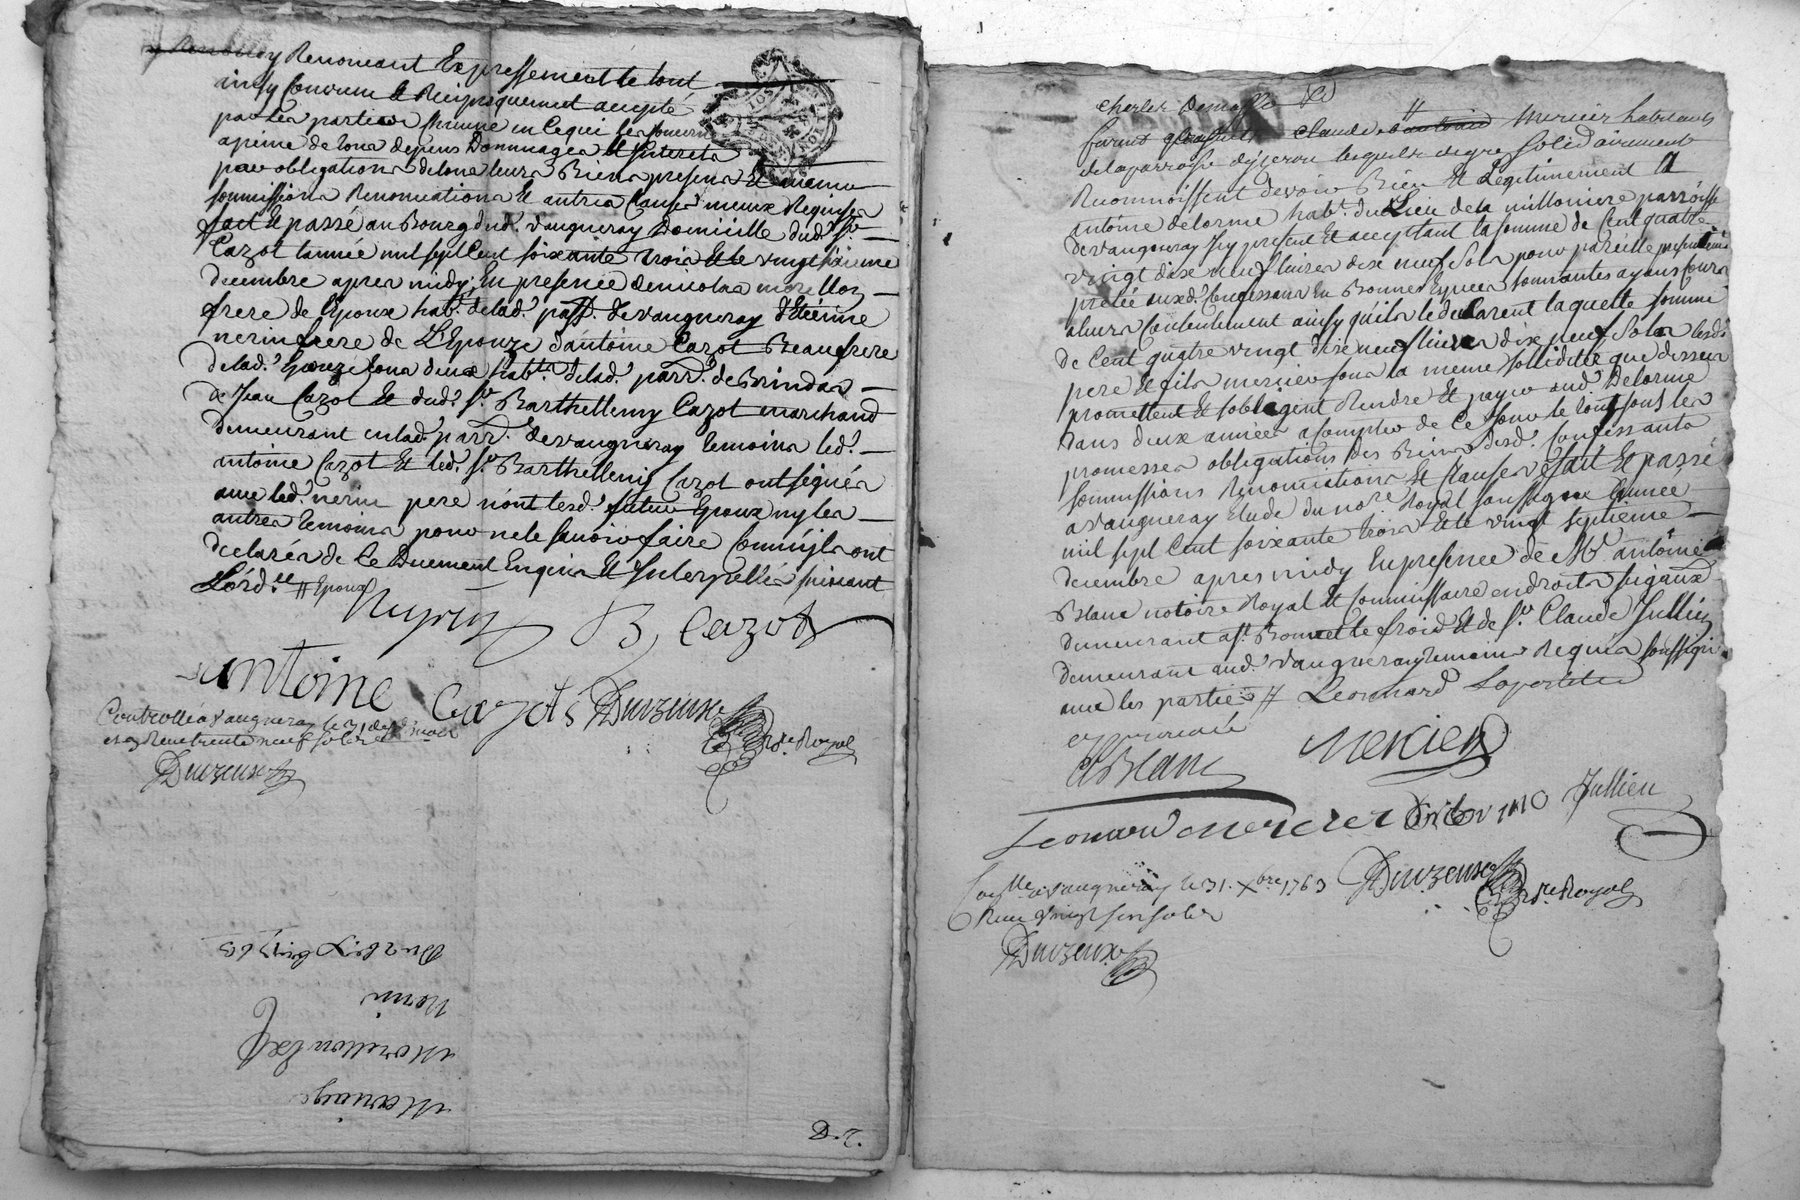 Renoncant Expressement le tout
ainsy Convenu Et Reciproquement accepté
par les parties chacune en ce qui les concerne
apeine de tous depens Dommages Et Interets
par obligations de tous leurs Biens presens Et
soumissions Renonciations Et autres Clauses mieux Requises
fait Et passé au Bourg dud. vaugneray Domicille dud. Sr
Cazot l'année mil sept Cent soixante trois Et le vingt sixieme
decembre apres midy En presence de nicolas morellon
frere de L'epoux habt. delad. parr. de vaugneray d'Etienne
nerin frere de L'Epouze d'antoine Cazot Beaufrere
delad. Epouze tous deux habts. delad. parr. de Brindas
de Jean Cazot Et dud. Sr. Barthellemy Cazot marchand
demeurant en lad. parr. de vaugneray temoins led.
antoine Cazot Et led. Sr. Barthellemy Cazot ont signés
avec led. nerin pere non lesd. futur Epoux ny les
autres temoins pour ne le sçavoir faire Comme ils ont
declarés de Ce Duement Enquis Et Interpellés suivant
L'ord.ce // Epoux
B Cazot
antoine Cazot Duvzeux
Nre Royal
Controllé a vaugneray le 31 decembre
reçu trente neuf sols
Duvzeux
Du 26 Xbre 1763
Nerin
Morellon Et
Mariage
Claude Mercier habitants
de la parroisse d'yzeron lesquels de gre solidairement
Reconnoissent devoir Bien Et Legitimement A
antoine delorme habt. du Lieu de la millonière parroisse
de vaugneray Icy present Et acceptant la somme de Cent quatre
vingt dix neuf livres dix neuf sols pour pareille
pretée auxd. Confessans En Bonnes Especes sonnantes ayans Cours
aleurs Contentement ainsy qu'ils le declarent laquelle somme
de Cent quatre vingt dix neuf livres dix neuf sols lesds.
pere Et fils mercier sous la meme sollidité que dessus
promettent Et s'obligent Rendre Et payer aud. Delorme
dans deux années a Compter de Ce Jour le tout sous les
promesses obligations des Biens desd. Confessants
soumissions Renonciations Et Clauses fait Et passé
a vaugneray Etude du nore. Royal soussigné L'année
mil sept Cent soixante trois Et le vingt septieme
decembre apres midy En presence de Me antoine
Blanc notaire Royal Et Commissaire en droits seigaux
demeurant a St Bonnet le froid Et de Sr. Claude Jullien
demeurant aud. vaugneray temoins Requis soussignés
avec les parties // Leonnard
approuvé
Blanc Mercier
Leonard mercier Jullien
Conlle a vaugneray le 31. Xbre 1763 Duvzeux
Nre Royal
Reçu vingt six sols
Duvzeux